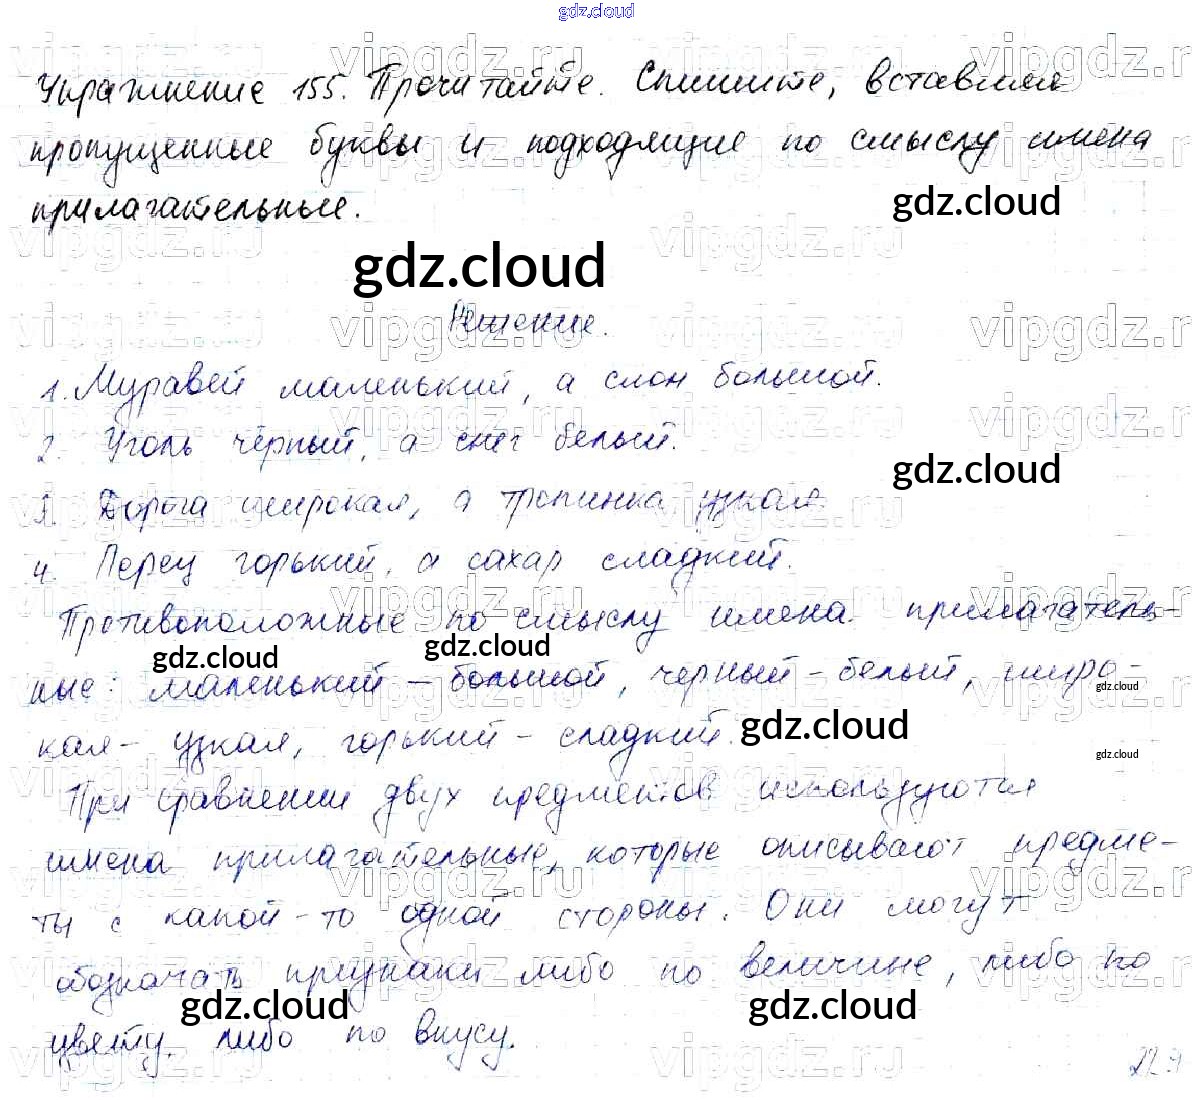 gdz.cloud
Упражнение 155. Прочитайте. Спишите, вставляя
пропущенные буквы и подходящие по смыслу имена
прилагательные.
gdz.cloud
gdz.cloud
Решение.
1. Муравей маленький, а слон большой.
2. Уголь чёрный, а снег белый.
gdz.cloud
3. Дорога широкая, а тропинка узкая.
4. Перец горький, а сахар сладкий.
Противоположные по смыслу имена прилагатель-
gdz.cloud gdz.cloud
ные: маленький - большой, черный - белый, широ-
gdz.cloud
кая - узкая, горький - сладкий.
gdz.cloud
gdz.cloud
При сравнении двух предметов используются
имена прилагательные, которые описывают предме-
ты с какой-то одной стороны. Они могут
обозначать признаки либо по величине, либо по
gdz.cloud gdz.cloud
цвету, либо по вкусу.
vipgdz.ru